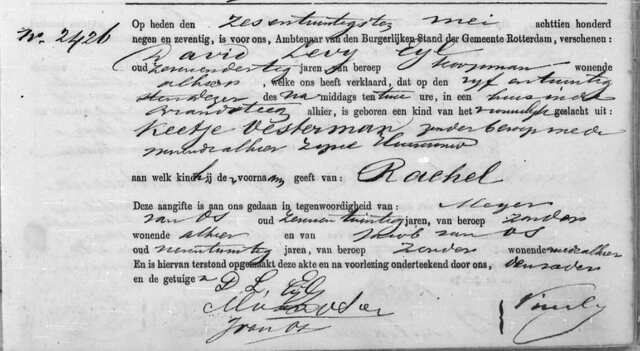 Nr. 2426
Op heden den zesentwintigsten mei achttien honderd
negen en zeventig, is voor ons, Ambtenaar van den Burgerlijken Stand der Gemeente Rotterdam, verschenen:
David Levy Eyl
oud zevenendertig jaren, van beroep koopman wonende
alhier, welke ons heeft verklaard, dat op den vyf entwintig
dezer des na middags ten twee ure, in een huis in de
Brandsteeg alhier, is geboren een kind van het vrouwelijk geslacht uit:
Keetje Vesterman zonder beroep mede
wonende alhier zyne huisvrouw
aan welk kind hij de voornaam geeft van: Rachel
Deze aangifte is aan ons gedaan in tegenwoordigheid van: Meyer
van Os oud zevenentwintig jaren, van beroep zonder
wonende alhier en van Jacob van Os
oud jaren, van beroep zonder wonende mede alhier
En is hiervan terstond opgemaakt deze akte en na voorlezing onderteekend door ons, den vader
en de getuigen
D L Eyl
M van Os
J van Os